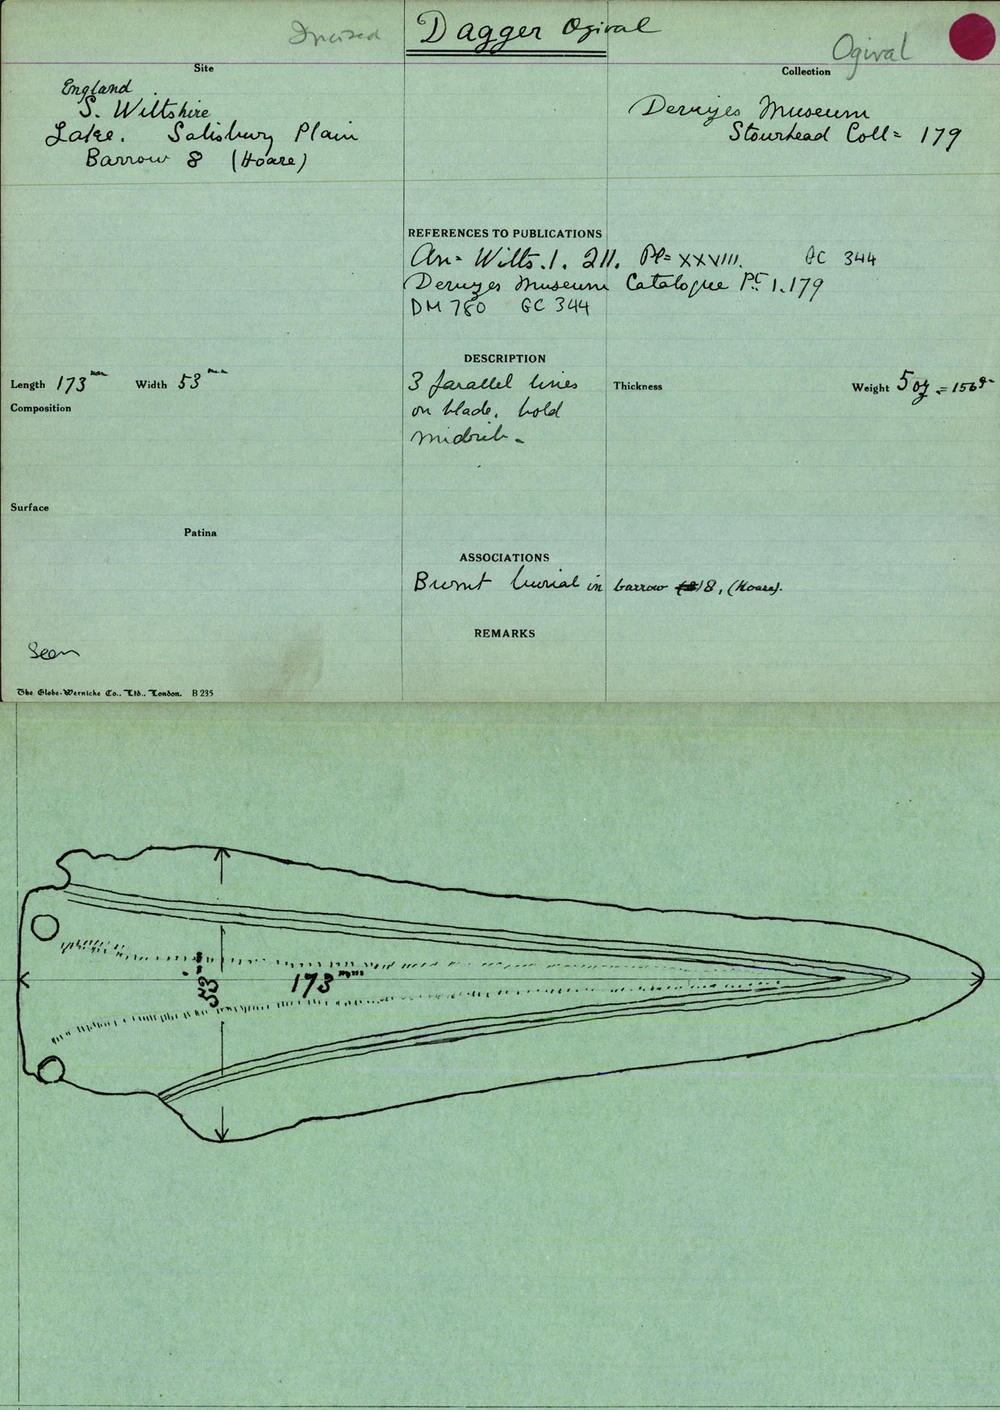 Incised
Dagger Ogival
Ogival
Site
England
S. Wiltshire
Lake. Salisbury Plain
Barrow 8 (Hoare)
Collection
Devizes Museum
Stourhead Coll= 179
REFERENCES TO PUBLICATIONS
An= Wilts. 1. 211. Pl= XXVIII. GC 344
Devizes Museum Catalogue Pt 1. 179
DM 780 GC 344
DESCRIPTION
Length 173mm Width 53mm
3 parallel lines
on blade, bold
midrib.
Thickness
Weight 5 oz = 156g
Composition
Surface
Patina
ASSOCIATIONS
Burnt burial in barrow 8, (Hoare).
REMARKS
Seen
The Globe-Wernicke Co., Ltd., London. B 235
53mm
173mm